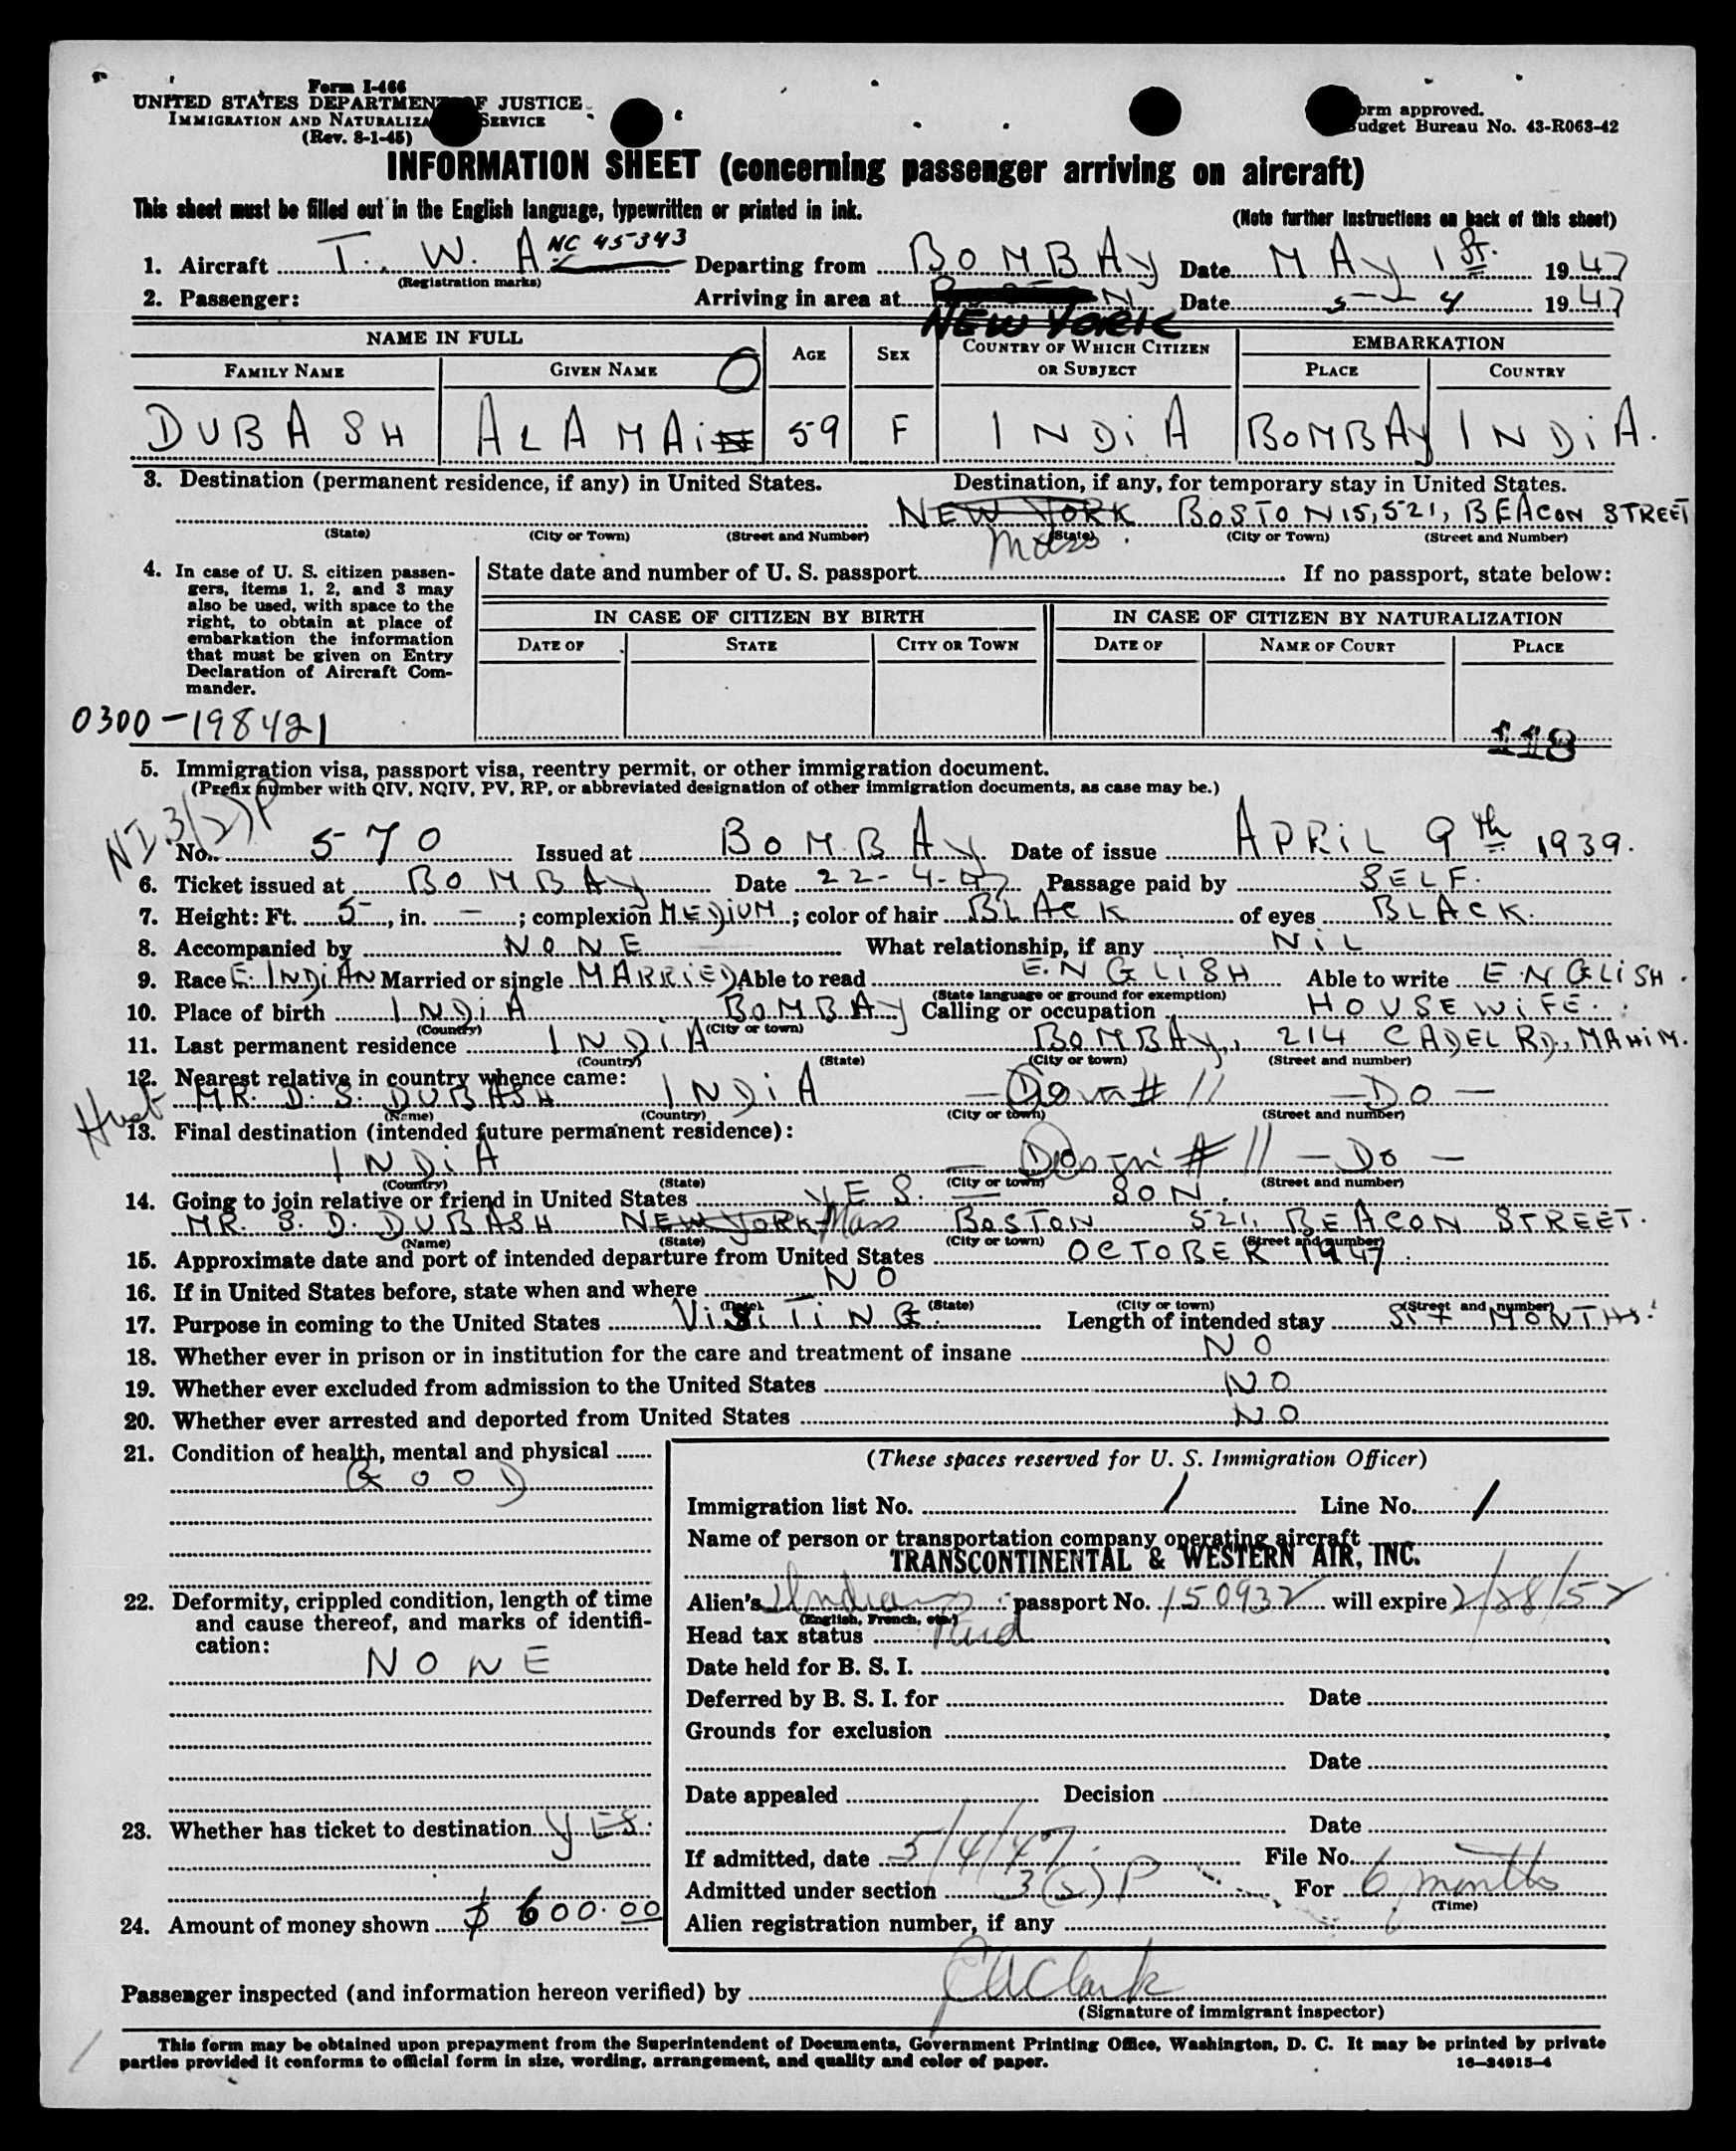 Form I-466
UNITED STATES DEPARTMENT OF JUSTICE
IMMIGRATION AND NATURALIZA SERVICE
(Rev. 8-1-45)
orm approved.
udget Bureau No. 43-R063-42
INFORMATION SHEET (concerning passenger arriving on aircraft)
This sheet must be filled out in the English language, typewritten or printed in ink.
(Note further instructions on back of this sheet)
1. Aircraft T. W. A. NC 45343 Departing from BOMBAY Date MAY 1St. 1947
(Registration marks)
2. Passenger: Arriving in area at NEW YORK Date 5-4 1947
NAME IN FULL AGE SEX COUNTRY OF WHICH CITIZEN OR SUBJECT EMBARKATION
FAMILY NAME GIVEN NAME PLACE COUNTRY
DUBASH ALAMAi 59 F INDiA BOMBAY INDiA.
3. Destination (permanent residence, if any) in United States. Destination, if any, for temporary stay in United States.
NEW YORK Mass. BOSTON 15, 521, BEACON STREET
(State) (City or Town) (Street and Number) (State) (City or Town) (Street and Number)
4. In case of U. S. citizen passen-
gers, items 1, 2, and 3 may
also be used, with space to the
right, to obtain at place of
embarkation the information
that must be given on Entry
Declaration of Aircraft Com-
mander.
State date and number of U. S. passport If no passport, state below:
IN CASE OF CITIZEN BY BIRTH IN CASE OF CITIZEN BY NATURALIZATION
DATE OF STATE CITY OR TOWN DATE OF NAME OF COURT PLACE
0300-198421
118
5. Immigration visa, passport visa, reentry permit, or other immigration document.
(Prefix number with QIV, NQIV, PV, RP, or abbreviated designation of other immigration documents, as case may be.)
NI 3(2)P
No. 570 Issued at BOMBAY Date of issue APRiL 9th 1939.
6. Ticket issued at BOMBAY Date 22-4-47 Passage paid by SELF.
7. Height: Ft. 5, in. - ; complexion MEDiUM; color of hair BLACK of eyes BLACK.
8. Accompanied by NONE What relationship, if any NiL
9. Race E. INDiAN Married or single MARRiED Able to read ENGLiSH Able to write ENGLiSH.
(State language or ground for exemption)
10. Place of birth INDiA BOMBAY Calling or occupation HOUSEWiFE.
(Country) (City or town)
11. Last permanent residence INDiA BOMBAY, 214 CADEL RD, MAHiM.
(Country) (State) (City or town) (Street and number)
12. Nearest relative in country whence came:
Hust MR. D. S. DUBASH INDiA - Do # 11 - DO -
(Name) (Country) (City or town) (Street and number)
13. Final destination (intended future permanent residence):
INDiA - Do # 11 - Do -
(Country) (State) (City or town) (Street and number)
14. Going to join relative or friend in United States YES. - SON.
MR. S. D. DUBASH NEW YORK Mass BOSTON 521, BEACON STREET.
(Name) (State) (City or town) (Street and number)
15. Approximate date and port of intended departure from United States OCTOBER 1947.
16. If in United States before, state when and where NO
(Date) (State) (City or town) (Street and number)
17. Purpose in coming to the United States ViSiTiNG. Length of intended stay SiX MONTHS.
18. Whether ever in prison or in institution for the care and treatment of insane NO
19. Whether ever excluded from admission to the United States NO
20. Whether ever arrested and deported from United States NO
21. Condition of health, mental and physical
GOOD
22. Deformity, crippled condition, length of time
and cause thereof, and marks of identifi-
cation:
NONE
23. Whether has ticket to destination YES.
24. Amount of money shown $ 600.00
(These spaces reserved for U. S. Immigration Officer)
Immigration list No. 1 Line No. 1
Name of person or transportation company operating aircraft
TRANSCONTINENTAL & WESTERN AIR, INC.
Alien's Indian passport No. 150932 will expire 2/28/52
(English, French, etc.)
Head tax status Paid
Date held for B. S. I.
Deferred by B. S. I. for Date
Grounds for exclusion
Date
Date appealed Decision
Date
If admitted, date 5/4/47 File No.
Admitted under section 3(2)P For 6 months
(Time)
Alien registration number, if any
Passenger inspected (and information hereon verified) by Clark
(Signature of immigrant inspector)
This form may be obtained upon prepayment from the Superintendent of Documents, Government Printing Office, Washington, D. C. It may be printed by private
parties provided it conforms to official form in size, wording, arrangement, and quality and color of paper. 16-34915-4